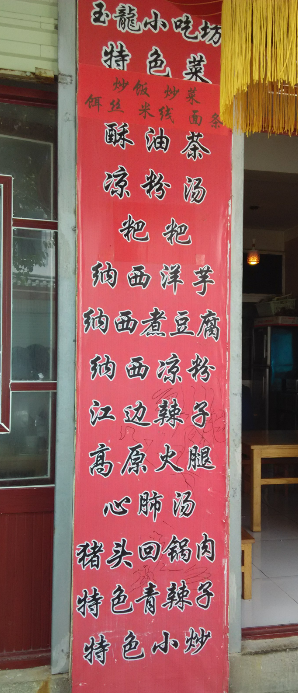 玉龍小吃坊
特色菜
炒饭 炒菜
饵丝 米线 面条
酥油茶
凉粉汤
粑粑
纳西洋芋
纳西煮豆腐
纳西凉粉
江边辣子
高原火腿
心肺汤
猪头回锅肉
特色青辣子
特色小炒